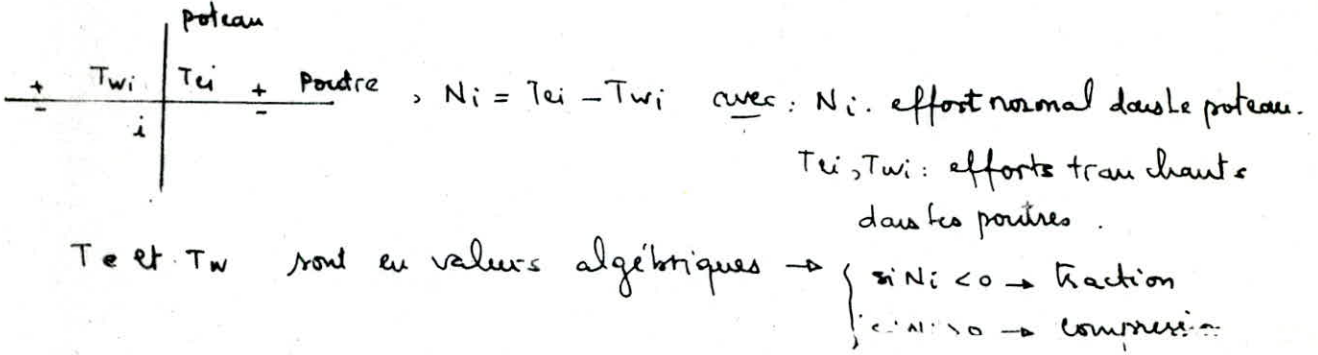 poteau
+ Twi Tei + Poutre , Ni = Tei - Twi avec : Ni . effort normal dans le poteau.
- i -
Tei , Twi : efforts tranchants
dans les poutres .
Te et Tw sont en valeurs algébriques → { si Ni < 0 → traction
si Ni > 0 → compression